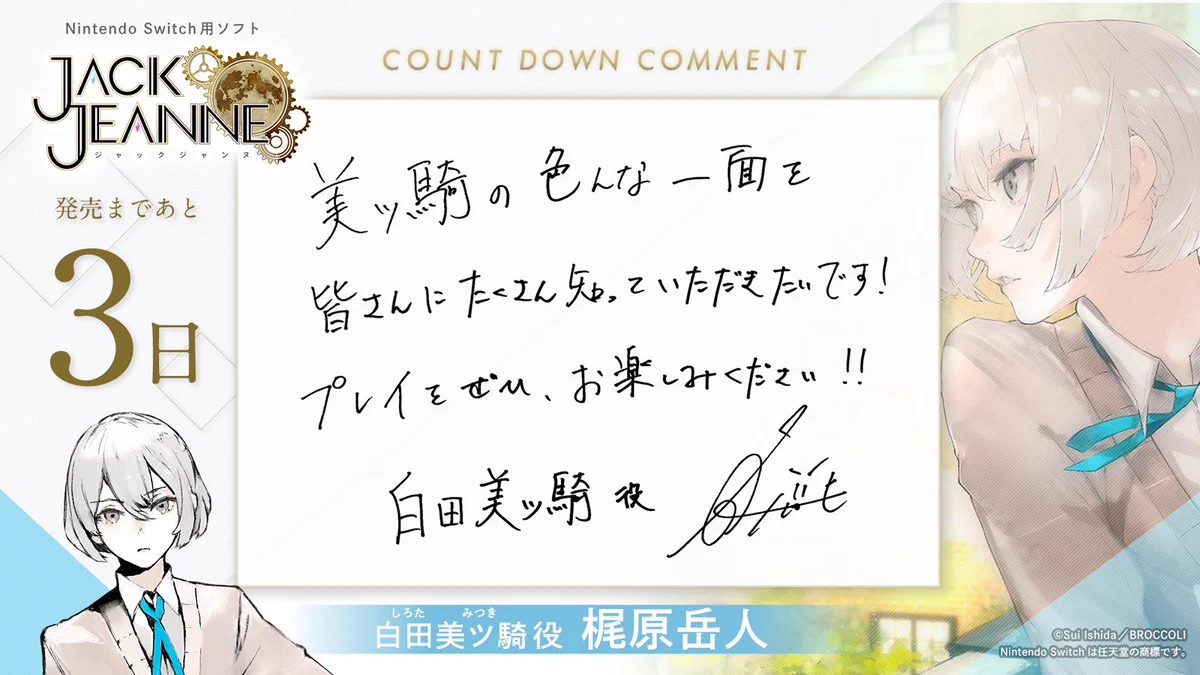 Nintendo Switch用ソフト
JACK
JEANNE
ジャックジャンヌ
発売まであと
3日
COUNT DOWN COMMENT
美ツ騎の色んな一面を
皆さんにたくさん知っていただきたいです!
プレイをぜひ、お楽しみください!!
白田美ツ騎役
しろた みつき
白田美ツ騎役 梶原岳人
©Sui Ishida/BROCCOLI
Nintendo Switchは任天堂の商標です。